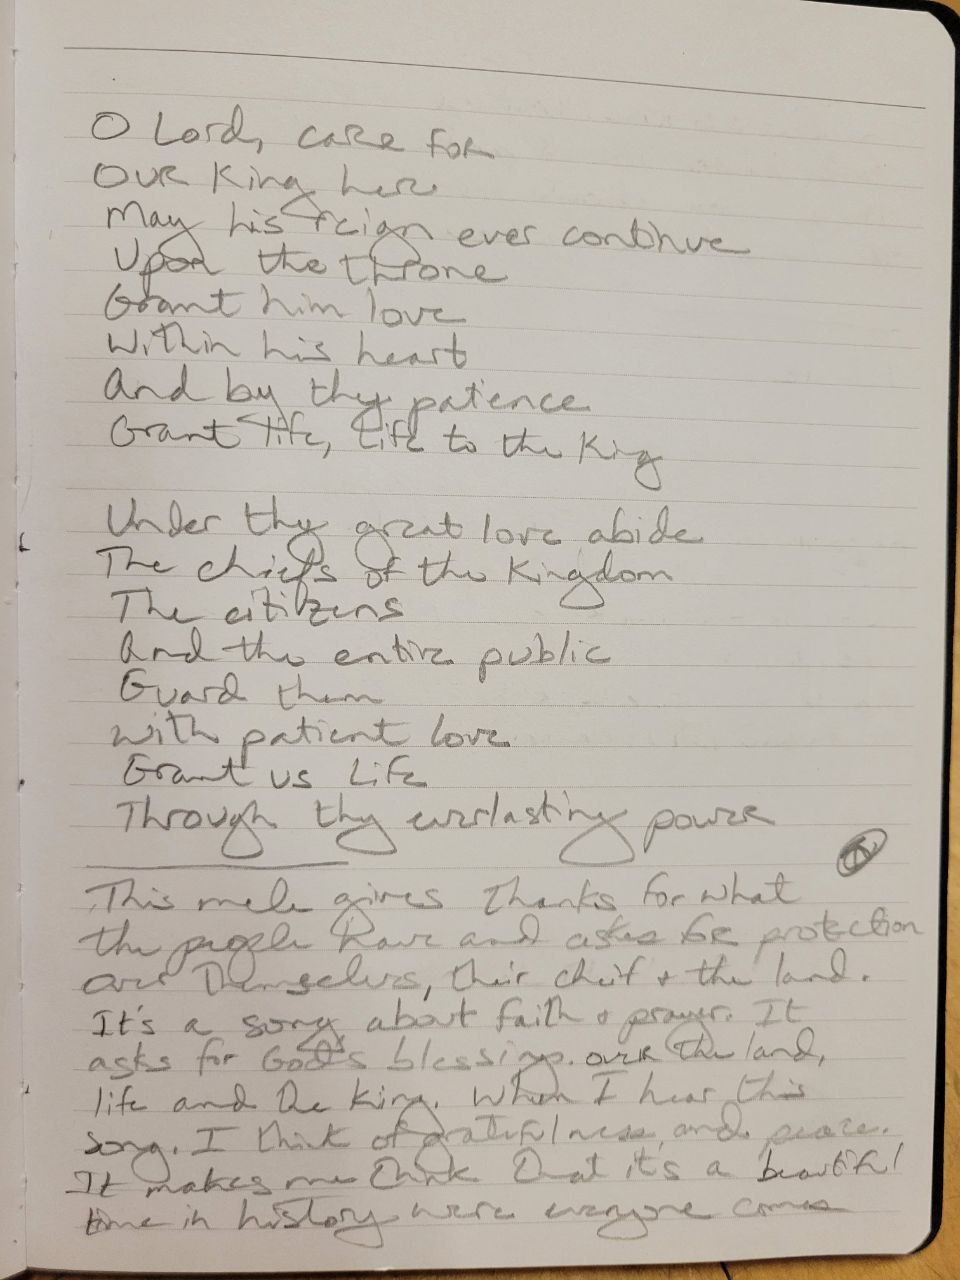 O Lord, care for
our King here
May his reign ever continue
Upon the throne
Grant him love
Within his heart
And by thy patience
Grant life, life to the King
Under thy great love abide
The chiefs of the Kingdom
The citizens
And the entire public
Guard them
with patient love
Grant us Life
Through thy everlasting power
This mele gives thanks for what
the people have and askes for protection
over themselves, their cheif + the land.
It's a song about faith + prayer. It
asks for God's blessings over the land,
life and the King. When I hear this
song, I think of gratefulness, and peace.
It makes me think that it's a beautiful
time in history were everyone comes